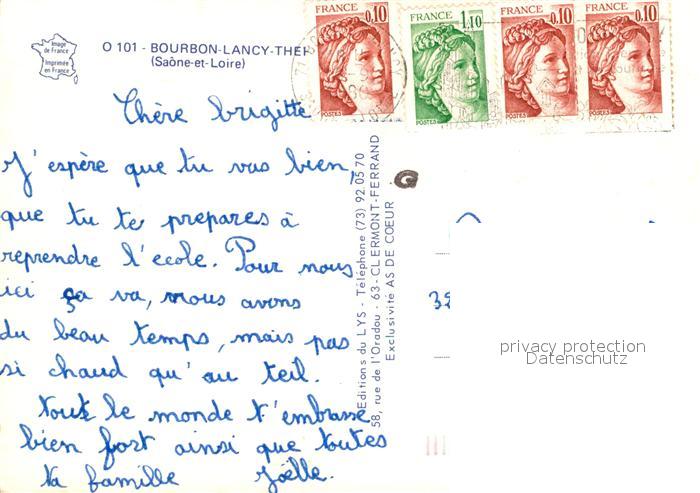 Image
de France
Imprimée
en France
O 101 - BOURBON-LANCY-THER
(Saône-et-Loire)
FRANCE 0,10
POSTES
FRANCE 1,10
POSTES
FRANCE 0,10
POSTES
FRANCE 0,10
POSTES
Chère Brigitte
J'espère que tu vas bien,
que tu te prepares à
reprendre l'ecole. Pour nous
ici ça va, nous avons
du beau temps, mais pas
si chaud qu'au teil.
Tout le monde t'embrasse
bien fort ainsi que toutes
ta famille Joëlle.
Editions du LYS - Téléphone (73) 92 05 70
58, rue de l'Oradou - 63-CLERMONT-FERRAND
Exclusivité AS DE COEUR
G
privacy protection
Datenschutz